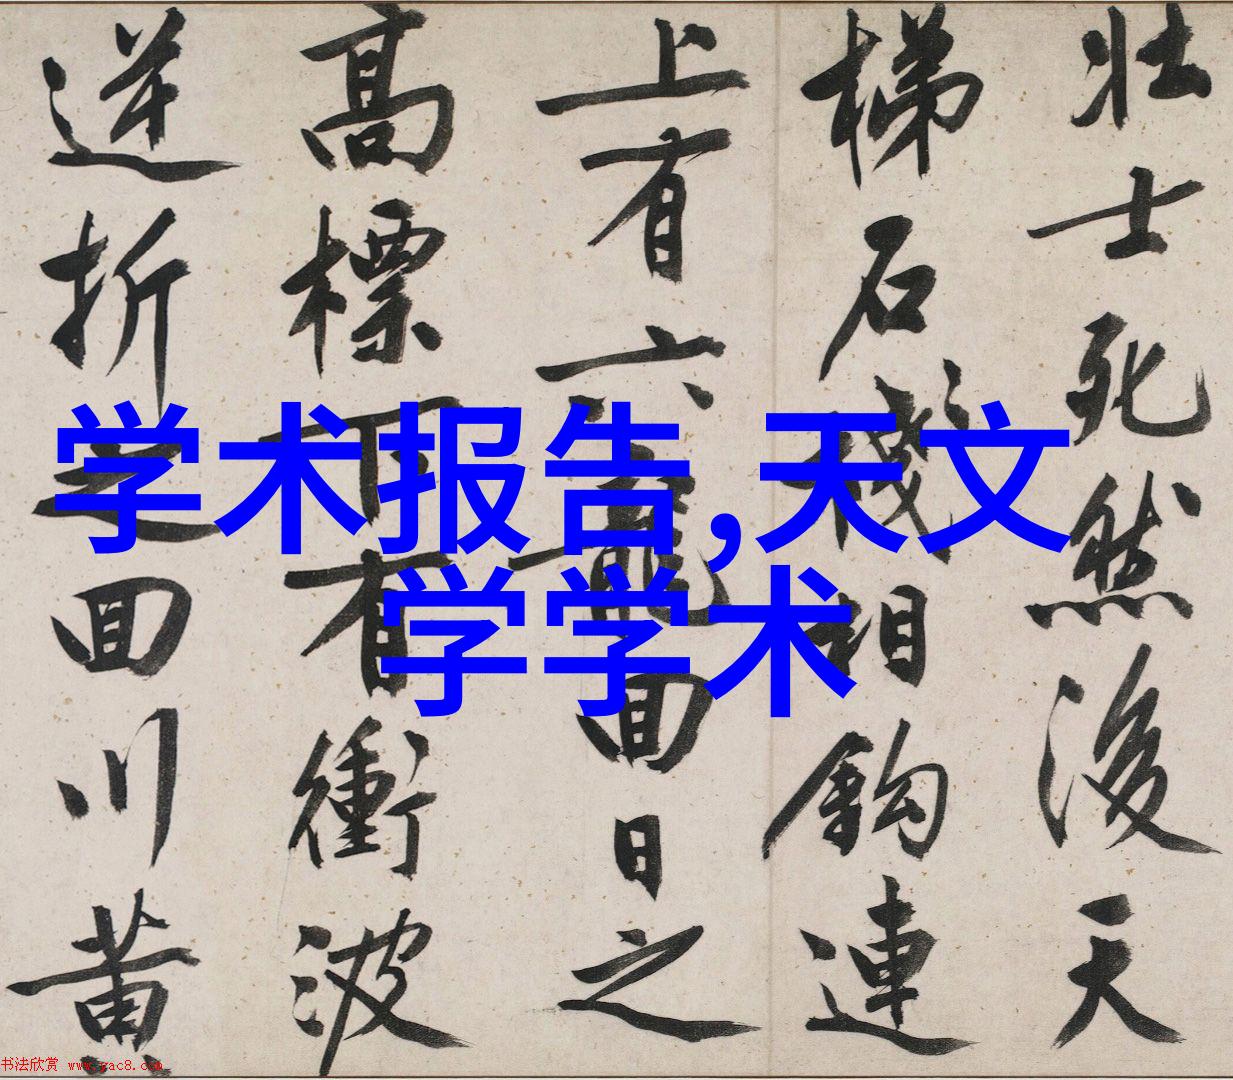 壮士死然後天
梯石棧相鈎連
上有六龍回日之
高標下有衝波
逆折之回川黃
学术报告,天文
学学术
书法欣赏 www.yac8.com